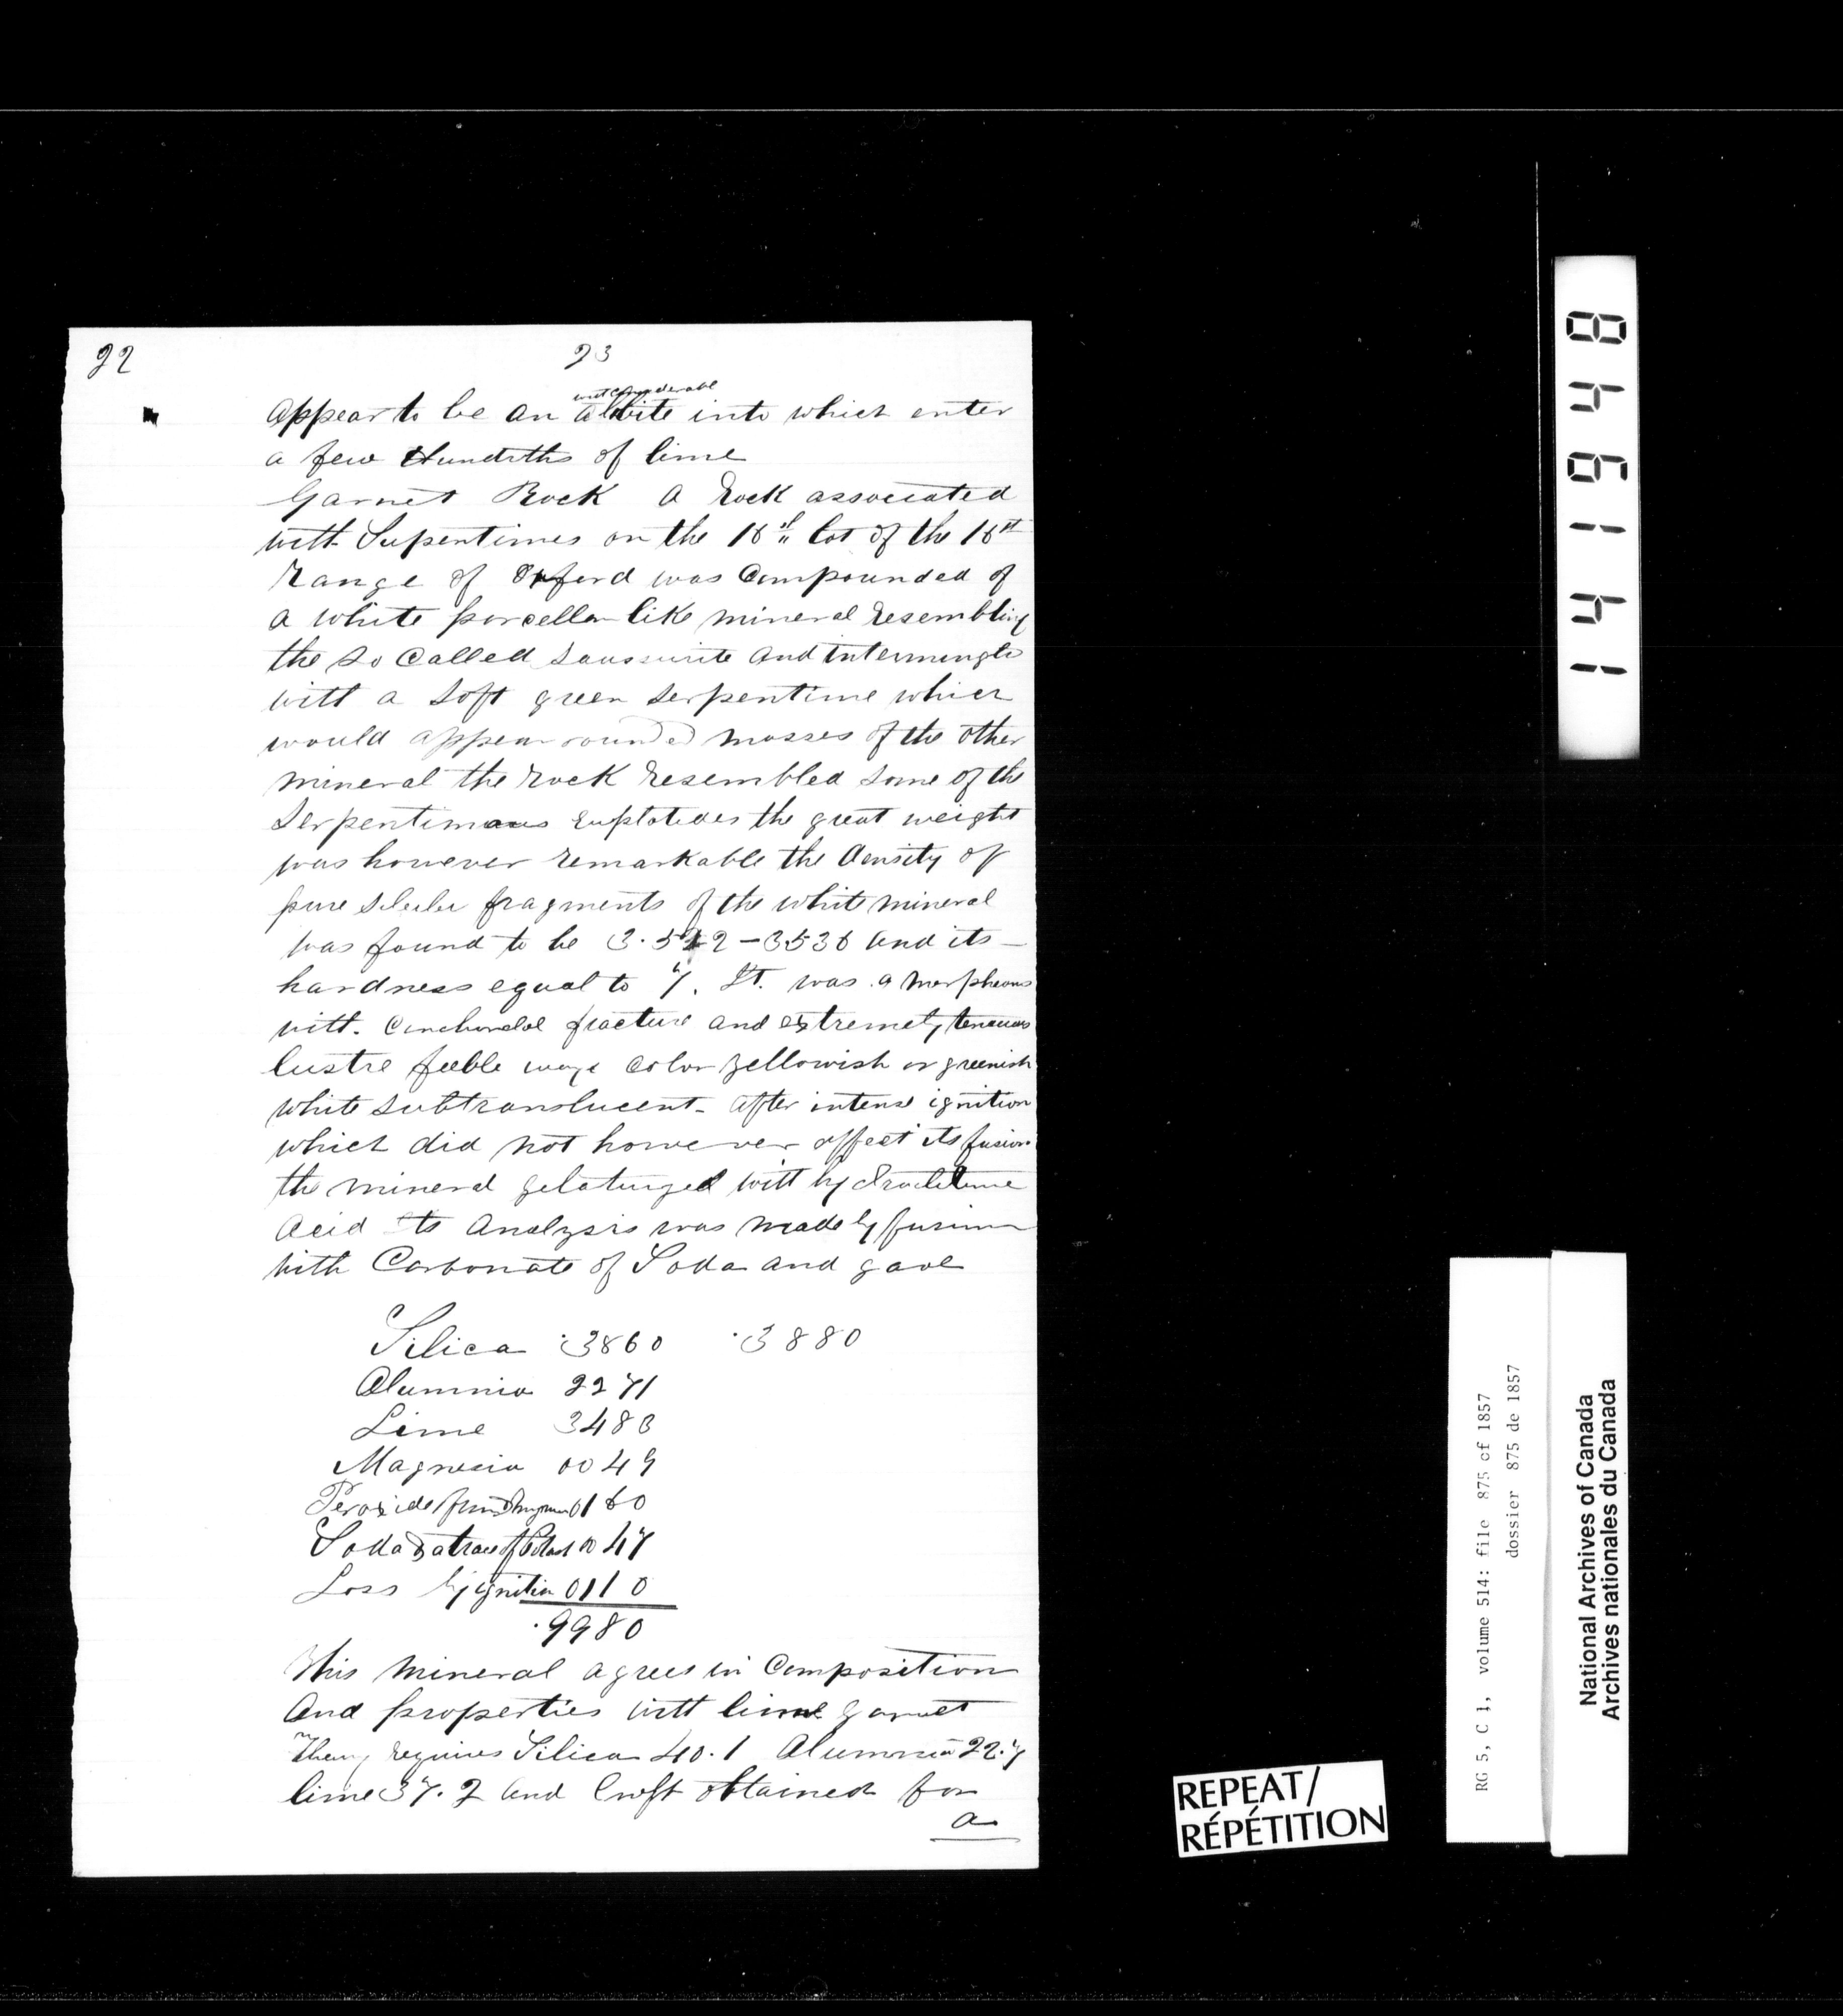 22
23
with considerable
appear to be an albite into which enter
a few Hundriths of lime
Garnet Rock A Rock associated
with Supentimes on the 18th lot of the 18th
Range of Orford was Compounded of
a white porcellan like mineral resembling
the so Called saussurite and intermingle
with a soft green serpentine which
would appear rounded masses of the other
mineral the rock resembled some of the
Serpentinous the great weight
was however remarkable the density of
pure fragments of the white mineral
was found to be 3.522-3536 and its
hardness equal to 7. It was amorpheous
with Conchoidal fracture and extremely tenacious
lustre feeble waxy color yellowish or greenish
white subtranslucent after intense ignition
which did not however affect its fusion
the mineral gelatinized with
Acid its Analysis was made by fusion
with Carbonate of Soda and gave
Silica .3860 .3880
Alumnia 2271
Lime 3483
Magnesia 0049
Peroxide 0160
Soda & a trace of Potash 0047
Loss by ignition 0110
.9980
This mineral agrees in Composition
and properties with lime garnet
requires Silica 40.1 Alumnia 22.7
lime 37.2 and Croft obtained for
a
841941
RG 5, C 1, volume 514: file 875 of 1857
dossier 875 de 1857
National Archives of Canada
Archives nationales du Canada
REPEAT/
RÉPÉTITION